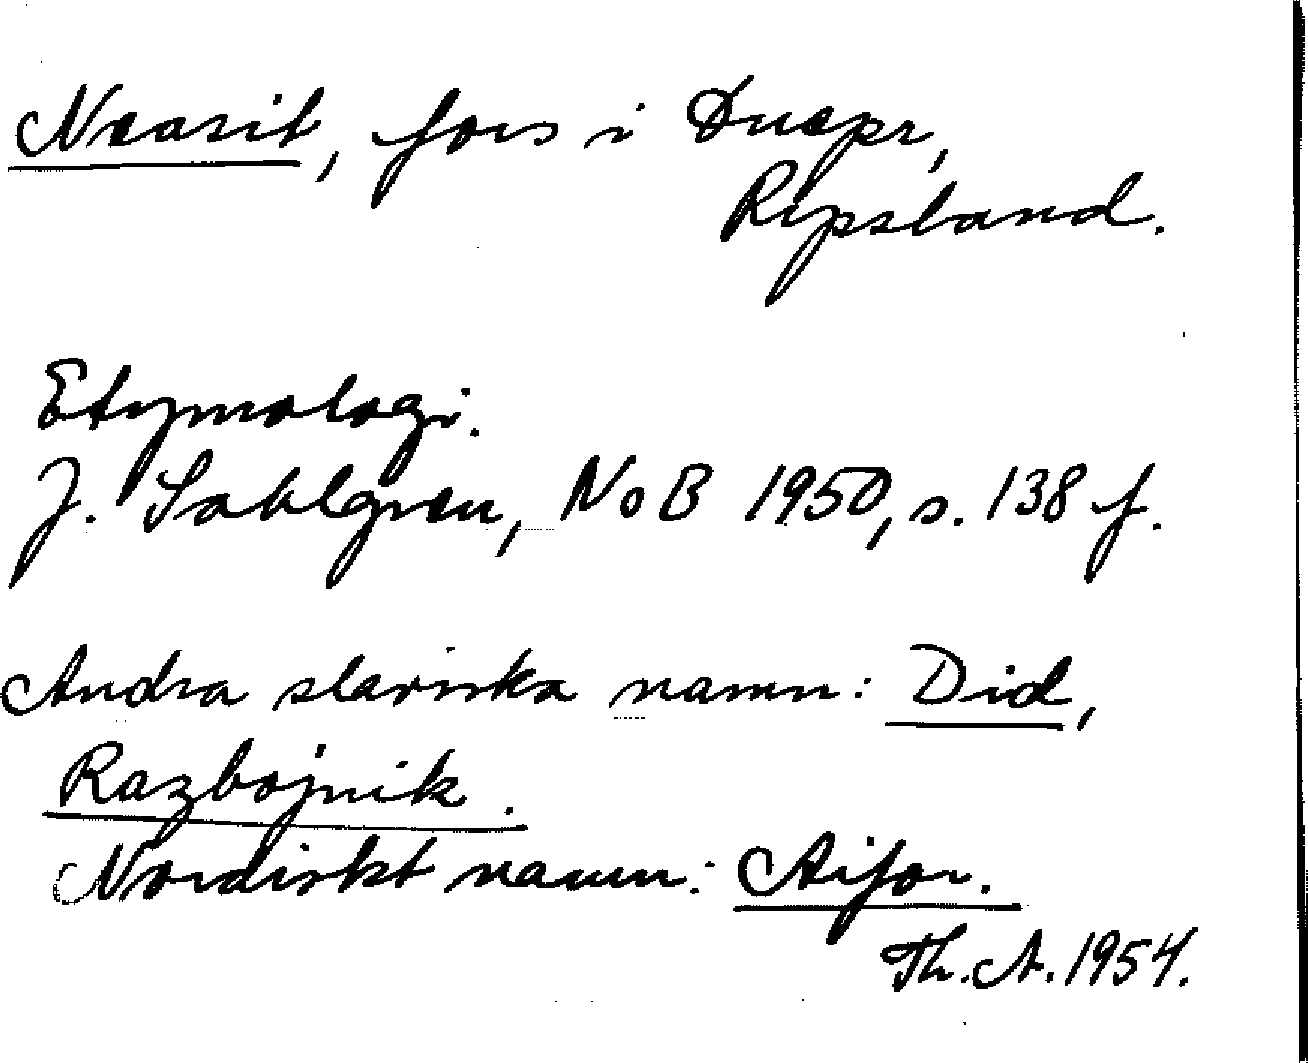 Neasit, fors i Dnepr,
Rysland.
Etymologi.
J. Sahlgren, NoB 1950, s. 138 f.
Andra slaviska namn: Did,
Razbojnik.
Nordiskt namn: Aifor.
Th. A. 1954.